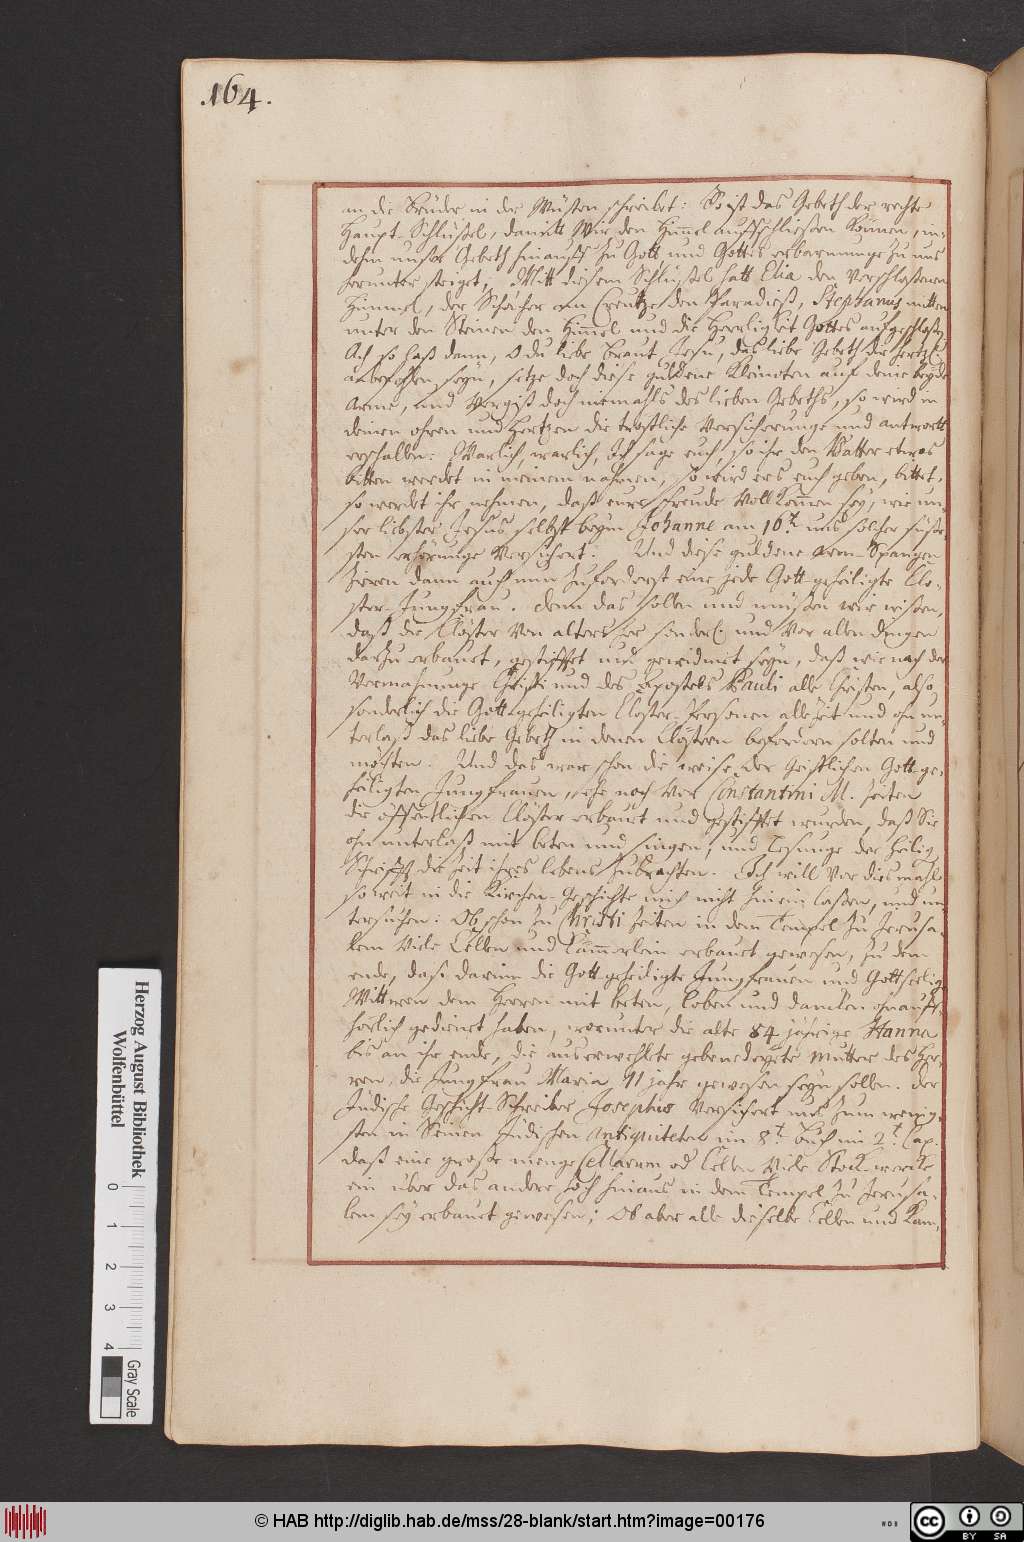 .164.
an die Brüder in der Wüsten schreibet: So ist das Gebeth der rechte
Haupt-Schlüßel, damitt Wir den Himel auffschließen können, in-
dehm unser Gebeth hinauff zu Gott und Gottes erbarmunge zu uns
herunter steiget, Mitt diesem Schlüßel hatt Elia den Verschloßenen
Himmel, der Schächer am Creutze den Paradieß, Stephanus mitten
unter den Steinen den Himel und die Herrligkeit Gottes aufgeschloßen
Ach so laß dann, O du liebe Braut Jesu, das liebe Gebeth dir hertzl.
anbefohlen seyn, setze doch diese guldene Kleinoten auf deine beyde
Arme, und Vergiß doch niemahls des lieben Gebeths, so wird in
deinen ohren und Hertzen die trostliche Versicherunge und antwortt
erschallen: Warlich, warlich, Ich sage euch, so ihr den Vatter etwas
bitten werdet in meinem nahmen, so wird ers euch geben, bittet,
so werdet ihr nehmen, daß eure freude Vollkomen sey, wie un-
ser liebster Jesus selbst beym Johanne am 16 uns solcher süße-
sten erhörunge Versichert. Und diese guldene Arm-Spangen
zieren dann auch nun zuforderst eine jede Gott-geheiligte Clo-
ster-Jungfrau. denn das sollen und müßen wir wißen,
daß die Clöster Von alters her sonderl. und Vor allen dingen
darzu erbauet, gestifftet und gewidmet seyn, daß wie nach der
Vermahnunge Christi und des Apostels Pauli alle Christen, also
sonderlich die Gott-geheiligten Closter-Personen alle Zeit und ohn un-
terlaß das liebe Gebeth in denen Clöstern befordern solten und
möchten. Und das war schon die weise der Geistlichen Gott ge-
heiligten Jungfrauen, ehe noch Vor Constantini M. Zeiten
die öffentlichen Clöster erbauet und gestifftet wurden, daß Sie
ohn unterlaß mit beten und singen, und Lesunge der Heilig.
Schrifft die zeit ihres lebens zubrachten. Ich will Vor dies mahl
so weit in die Kirchen-Geschichte mich nicht hinein laßen, und un-
tersuchen: Ob schon zu Christi Zeiten in dem Tempel zu Jerusa-
lem Viele Cellen und Kämerlein erbauet gewesen, zu dem
ende, daß darinn die Gott geheiligte Jungfrauen und Gottseelige
Wittwen dem Herren mit beten, loben und dancken ohnauff-
hörlich gedienet haben, worunter die alte 84 jährige Hanna
bis an ihr ende, die auserwehlete gebenedeyete Mutter des Her-
ren, die Jungfrau Maria 11 jahr gewesen seyn sollen. der
Jüdische Geschicht-Schreiber Josephus Versichert uns zum wenig-
sten in Seinen Jüdischen Antiquiteten im 8t. buch im 2t. Cap.
daß eine große menge Cellarum od Cellen Viele Stockwercke
ein über das andere hoch hinaus in dem Tempel zu Jerusa-
lem sey erbauet gewesen; Ob aber alle dieselbe Cellen und Kam-
Herzog August Bibliothek
Wolfenbüttel
0 1 2 3 4
Gray Scale
© HAB http://diglib.hab.de/mss/28-blank/start.htm?image=00176
cc BY SA